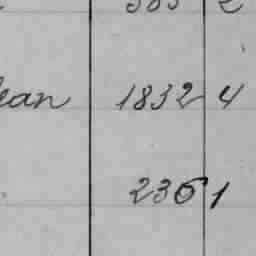 ean 1832 4
236 1